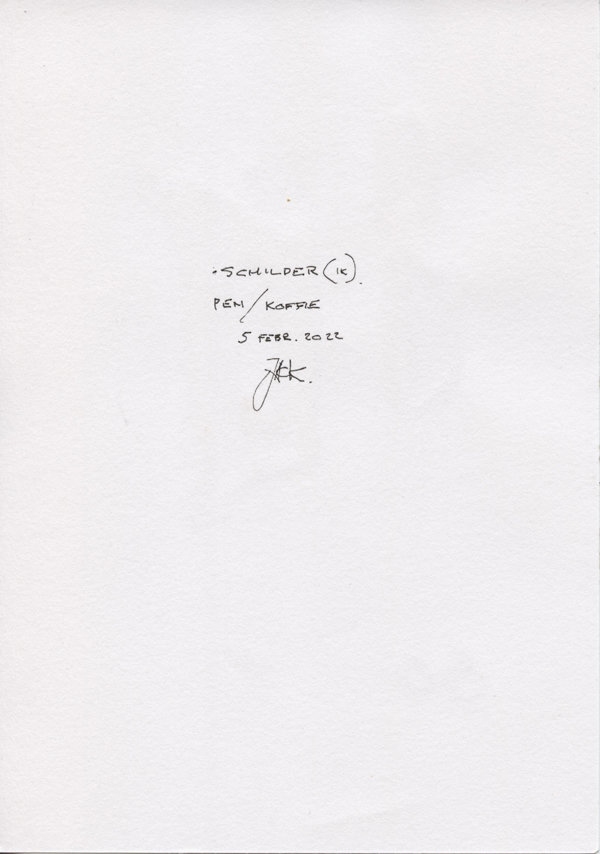 ·SCHILDER (IK).
PEN/KOFFIE
5 FEBR. 2022